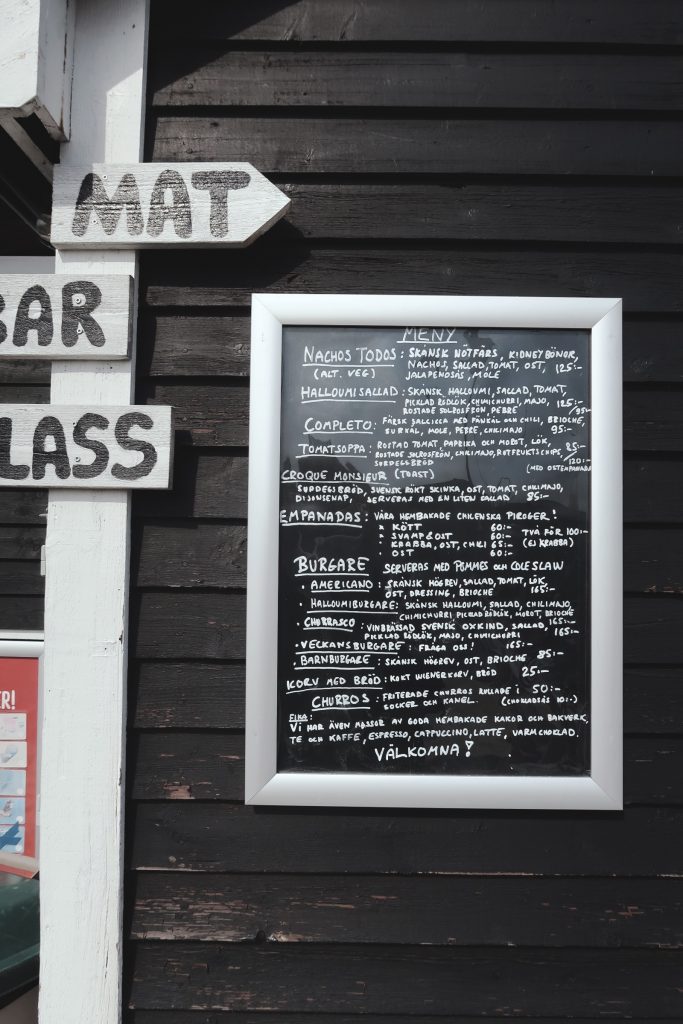 MAT
BAR
LASS
R!
MENY
NACHOS TODOS: SKÅNSK NÖTFÄRS, KIDNEYBÖNOR,
(ALT. VEG) NACHOS, SALLAD, TOMAT, OST, 125:-
JALAPENOSÅS, MOLE
HALLOUMISALLAD: SKÅNSK HALLOUMI, SALLAD, TOMAT,
PICKLAD RÖDLÖK, CHIMICHURRI, MAJO, 125:-
ROSTADE SOLROSFRÖN, PEBRE /95:-
COMPLETO: FÄRSK SALCICCA MED FÄNKÅL OCH CHILI, BRIOCHE,
SURKÅL, MOLE, PEBRE, CHILIMAJO 95:-
TOMATSOPPA: ROSTAD TOMAT, PAPRIKA OCH MOROT, LÖK, 85:-
ROSTADE SOLROSFRÖN, CHILIMAJO, ROTFRUKTSCHIPS, /120:-
SURDEGSBRÖD (MED OSTEMPANADA)
CROQUE MONSIEUR (TOAST)
SURDEGSBRÖD, SVENSK RÖKT SKINKA, OST, TOMAT, CHILIMAJO,
DIJONSENAP, SERVERAS MED EN LITEN SALLAD 85:-
EMPANADAS: VÅRA HEMBAKADE CHILENSKA PIROGER!
* KÖTT 60:-
* SVAMP & OST 60:- TVÅ FÖR 100:-
* KRABBA, OST, CHILI 65:- (EJ KRABBA)
* OST 60:-
BURGARE SERVERAS MED POMMES OCH COLESLAW
• AMERICANO: SKÅNSK HÖGREV, SALLAD, TOMAT, LÖK,
OST, DRESSING, BRIOCHE 165:-
• HALLOUMIBURGARE: SKÅNSK HALLOUMI, SALLAD, CHILIMAJO,
CHIMICHURRI, PICKLAD RÖDLÖK, MOROT, BRIOCHE
• CHURRASCO: VINBRÄSSAD SVENSK OXKIND, SALLAD, 165:-
PICKLAD RÖDLÖK, MAJO, CHIMICHURRI 165:-
• VECKANS BURGARE: FRÅGA OSS! 165:-
• BARNBURGARE: SKÅNSK HÖGREV, OST, BRIOCHE 85:-
KORV MED BRÖD: KOKT WIENERKORV, BRÖD 25:-
CHURROS: FRITERADE CHURROS RULLADE I 50:-
SOCKER OCH KANEL. (CHOKLADSÅS 10:-)
FIKA:
VI HAR ÄVEN MASSOR AV GODA HEMBAKADE KAKOR OCH BAKVERK,
TE OCH KAFFE, ESPRESSO, CAPPUCCINO, LATTE, VARM CHOKLAD.
VÄLKOMNA!